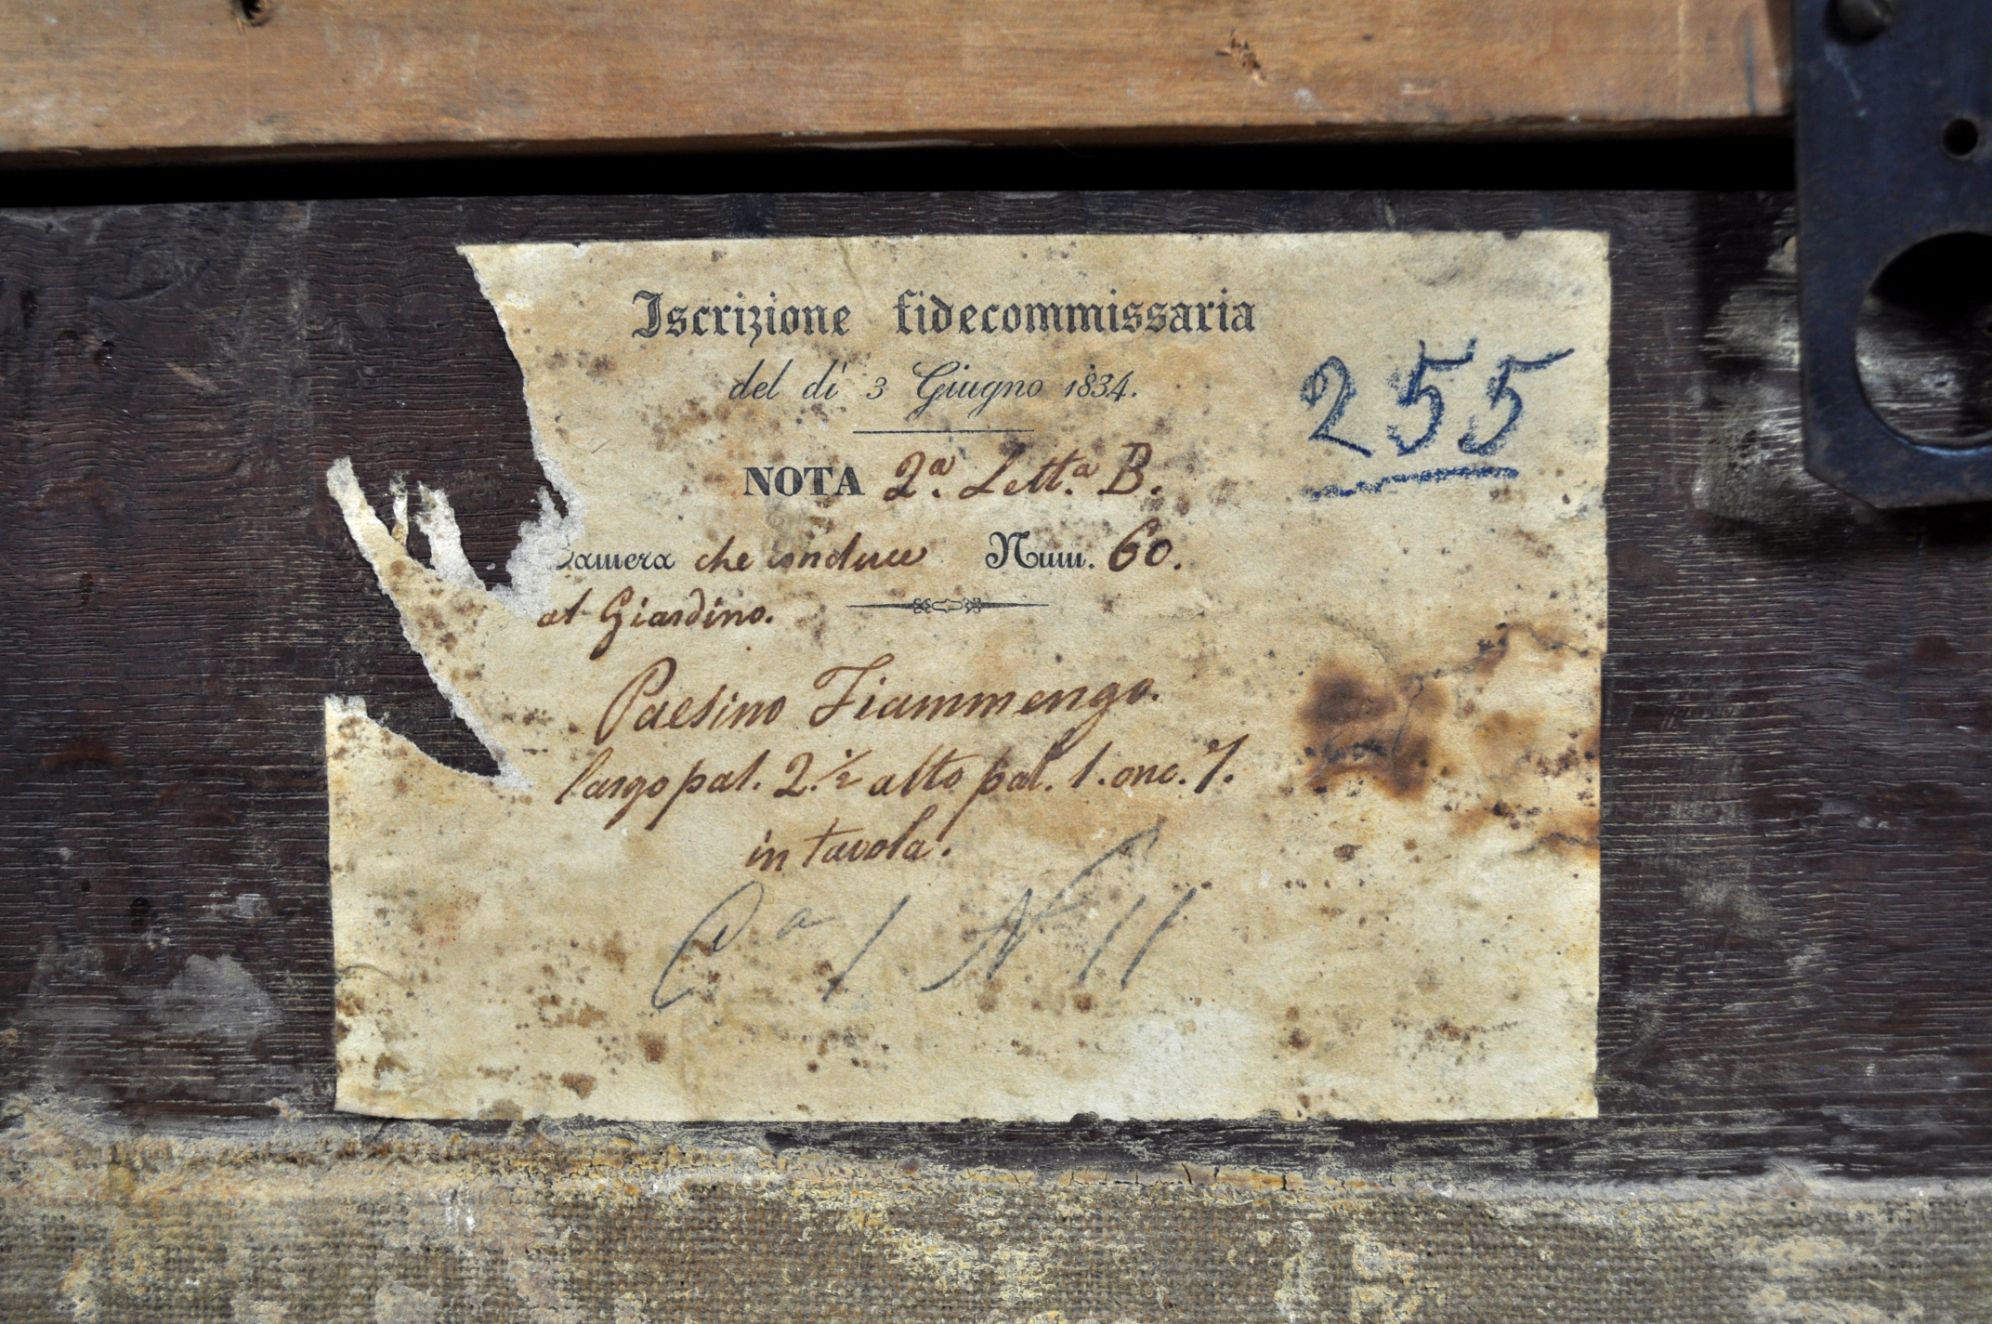 Iscrizione fidecommissaria
del dì 3 Giugno 1834.
255
NOTA 2.ª Lett.ª B.
Camera che conduce Num. 60.
al Giardino.
Paesino Fiammengo.
largo pal. 2.½ alto pal. 1. onc. 7.
in tavola.
Cª 1 N 11